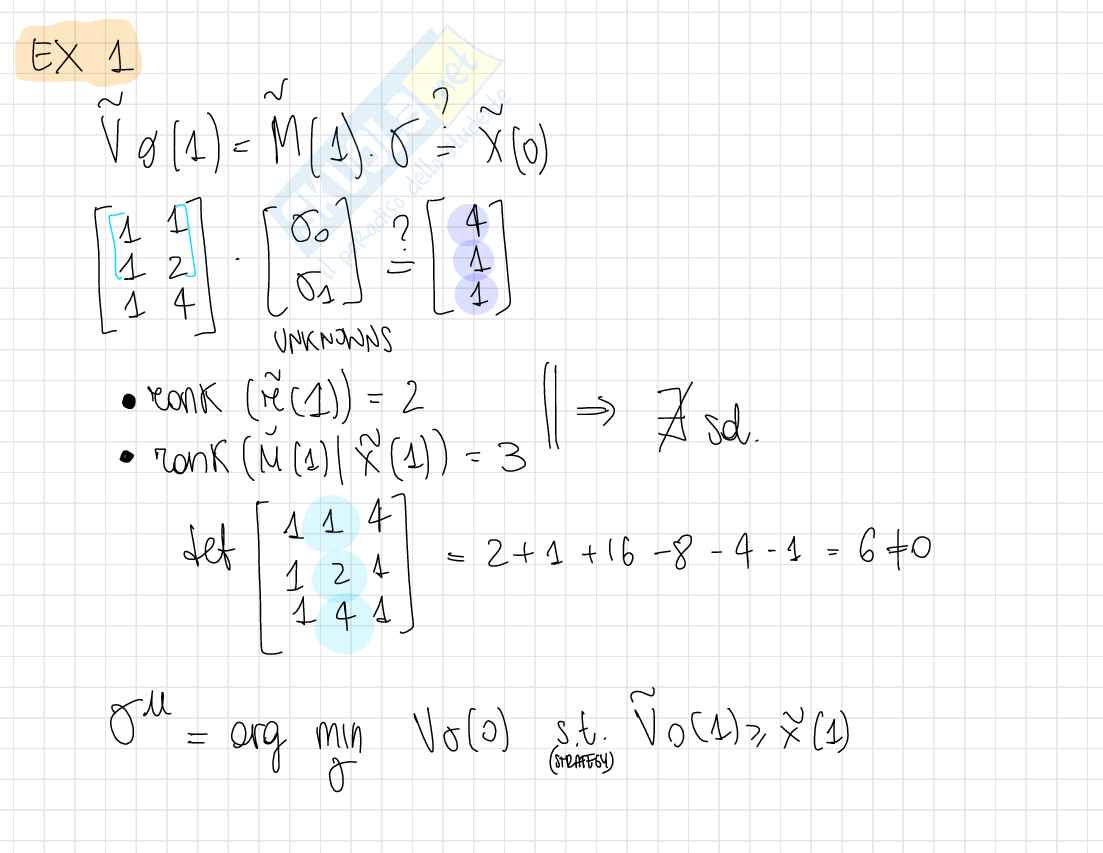 EX 1
Ṽσ(1) = M̃(1)·σ ≟ X̃(0)
[1 1; 1 2; 1 4] · [σ₀; σ₁] ≟ [4; 1; 1]
UNKNOWNS
• rank (M̃(1)) = 2
• rank (M̃(1) | X̃(1)) = 3 ‖ ⇒ ∄ sol.
det [1 1 4; 1 2 1; 1 4 1] = 2 + 1 + 16 - 8 - 4 - 1 = 6 ≠ 0
σᴹ = arg min Vσ(0) s.t. Ṽσ(1) ≥ X̃(1)
σ (STRATEGY)